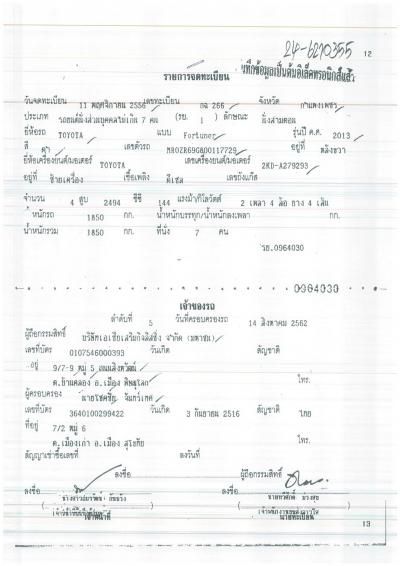 24-6210355
12
รายการจดทะเบียน
บันทึกข้อมูลเป็นต้นอิเล็คทรอนิกส์แล้ว
วันจดทะเบียน 11 พฤศจิกายน 2556 เลขทะเบียน กฉ 266 จังหวัด กำแพงเพชร
ประเภท รถยนต์นั่งส่วนบุคคลไม่เกิน 7 คน (รย. 1) ลักษณะ นั่งสามตอน
ยี่ห้อรถ TOYOTA แบบ Fortuner รุ่นปี ค.ศ. 2013
สี ดำ เลขตัวรถ อยู่ที่
ยี่ห้อเครื่องยนต์/มอเตอร์ TOYOTA เลขเครื่องยนต์/มอเตอร์ 2KD-A279293
อยู่ที่ ซ้ายเครื่อง เชื้อเพลิง ดีเซล เลขถังแก๊ส
จำนวน 4 สูบ 2494 ซีซี 144 แรงม้า/กิโลวัตต์ 2 เพลา 4 ล้อ ยาง 4 เส้น
น้ำหนักรถ 1850 กก. น้ำหนักบรรทุก/น้ำหนักลงเพลา กก.
น้ำหนักรวม 1850 กก. ที่นั่ง 7 คน
รย.0964030
0964030
เจ้าของรถ
ลำดับที่ 5 วันที่ครอบครองรถ 14 สิงหาคม 2562
ผู้ถือกรรมสิทธิ์ จำกัด (มหาชน)
เลขที่บัตร 0107546000393 วันเกิด สัญชาติ
อยู่ 9/7-9 หมู่ 5 ถนนสิงหวัฒน์
ต.บ้านคลอง อ.เมือง พิษณุโลก โทร.
ผู้ครอบครอง
เลขที่บัตร 3640100299422 วันเกิด 3 กันยายน 2516 สัญชาติ ไทย
ที่อยู่ 7/2 หมู่ 6
ต.เมืองเก่า อ.เมือง สุโขทัย โทร.
สัญญาเช่าซื้อเลขที่ ลงวันที่
ลงชื่อ ผู้ถือกรรมสิทธิ์
ลงชื่อ ลงชื่อ
เจ้าหน้าที่ นายทะเบียน
13